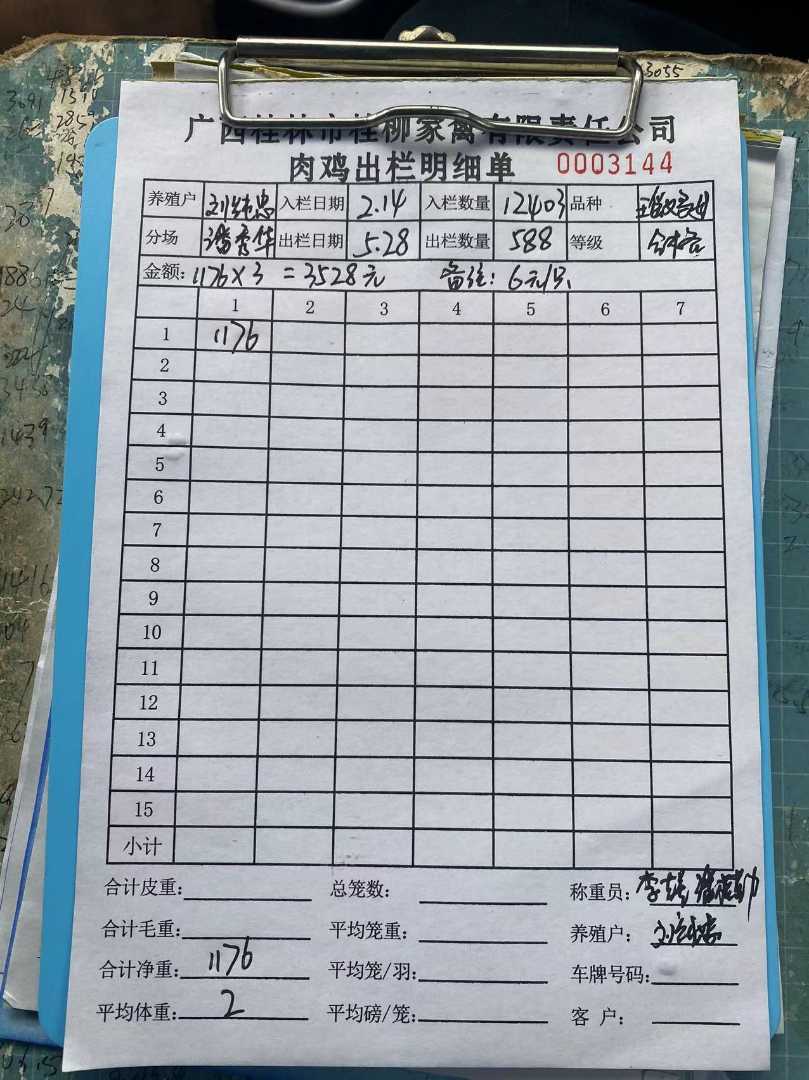 广西桂林市桂柳家禽有限责任公司
肉鸡出栏明细单 0003144
养殖户 入栏日期 2.14 入栏数量 12403 品种
分场 潘秀华 出栏日期 5.28 出栏数量 588 等级
金额: 1176×3 =3528元 备注: 6元/只
1 2 3 4 5 6 7
1 1176
2
3
4
5
6
7
8
9
10
11
12
13
14
15
小计
合计皮重: 总笼数: 称重员:
合计毛重: 平均笼重: 养殖户:
合计净重: 1176 平均笼/羽: 车牌号码:
平均体重: 2 平均磅/笼: 客 户: